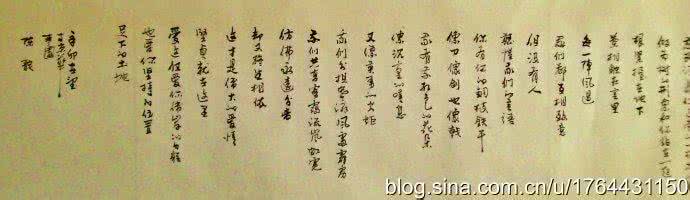 做为树的形象和你站在一起
根紧握在地下
叶相触在云里
每一阵风过
我们都互相致意
但没有人
听懂我们的言语
你有你的铜枝铁干
像刀像剑也像戟
我有我红色的花朵
像沉重的叹息
又像英勇的火炬
我们分担寒潮风雷霹雳
我们共享雾霭流岚虹霓
仿佛永远分离
却又终身相依
这才是伟大的爱情
坚贞就在这里
爱不仅爱你伟岸的身躯
也爱你坚持的位置
足下的土地
辛卯
blog.sina.com.cn/u/1764431150